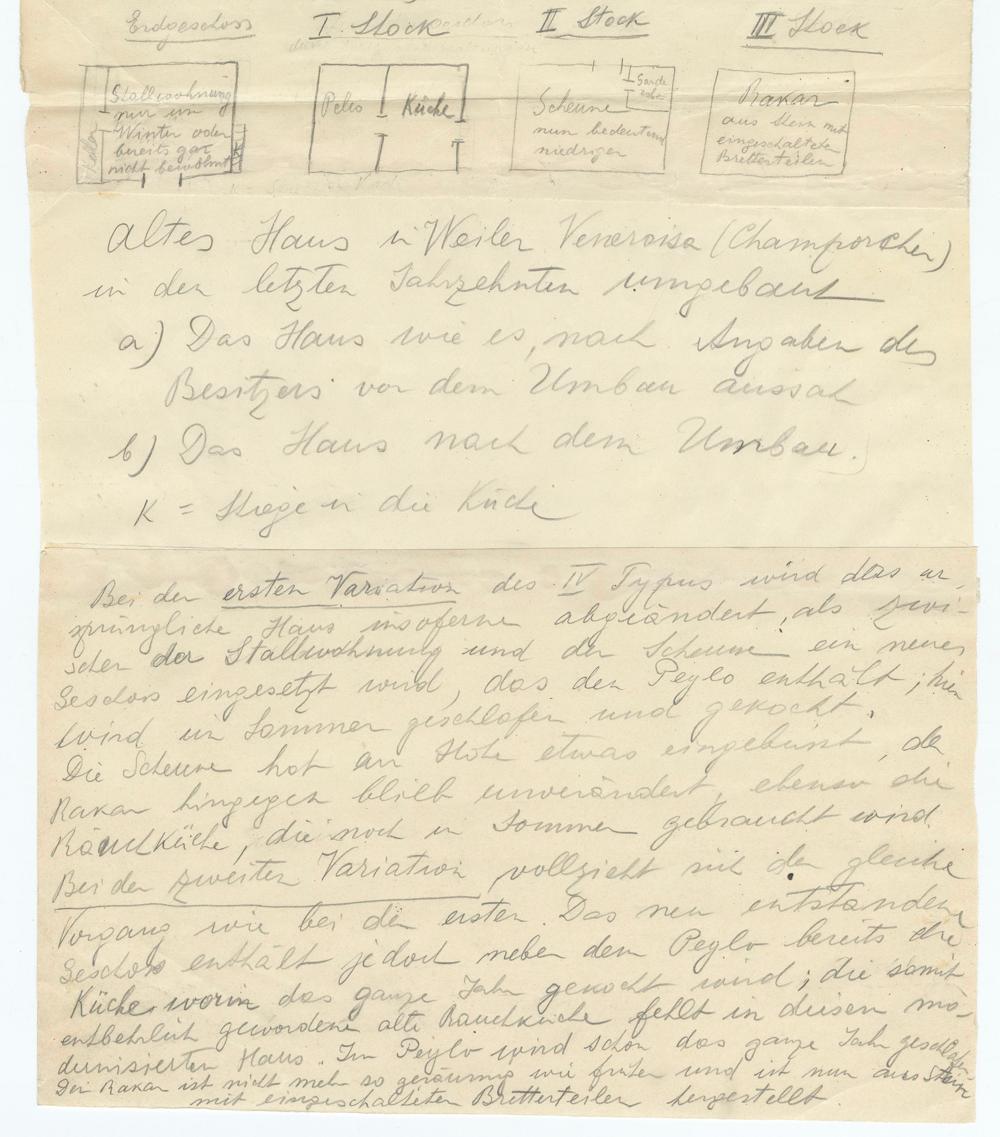 Erdgeschoss I. Stock II Stock III Stock
Stallwohnung
nur im
Winter oder
bereits gar
nicht bewohnt
Keller
K
Peilo Küche
Garde
robe
Scheune
nun bedeutend
niedriger
Rakar
aus Stein mit
eingeschalteten
Bretterteilen
altes Haus in Weiler Veneroisa (Champorcher)
in den letzten Jahrzehnten umgebaut
a) Das Haus wie es, nach Angaben des
Besitzers vor dem Umbau aussah
b) Das Haus nach dem Umbau.
K = Stiege in die Küche
Bei der ersten Variation des IV Typus wird das ur-
sprüngliche Haus insoferne abgeändert, als zwi-
schen der Stallwohnung und der Scheune ein neues
Geschoss eingesetzt wird, das den Peylo enthält; hier
wird im Sommer geschlafen und gekocht.
Die Scheune hat an Höhe etwas eingebüsst, der
Rakar hingegen blieb unverändert, ebenso die
Rauchküche, die noch im Sommer gebraucht wird.
Bei der zweiten Variation vollzieht sich der gleiche
Vorgang wie bei der ersten. Das neu entstandene
Geschoss enthält jedoch neben dem Peylo bereits die
Küche, worin das ganze Jahr gekocht wird; die somit
entbehrlich gewordene alte Rauchküche fehlt in diesem mo-
dernisierten Haus. Im Peylo wird schon das ganze Jahr geschlafen.
Der Rakar ist nicht mehr so geräumig wie früher und ist nun aus Stein
mit eingeschalteten Bretterteilen hergestellt.